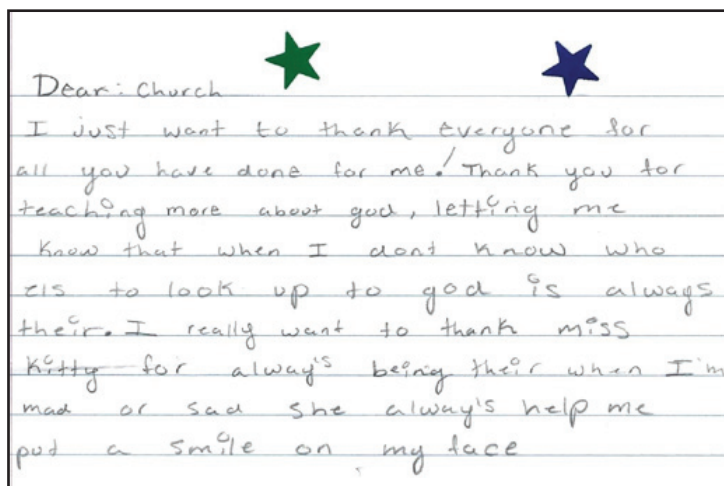 Dear: Church
I just want to thank everyone for
all you have done for me! Thank you for
teaching more about god, letting me
know that when I dont know who
els to look up to god is always
their. I really want to thank miss
kitty for alway's being their when I'm
mad or sad she alway's help me
put a smile on my face